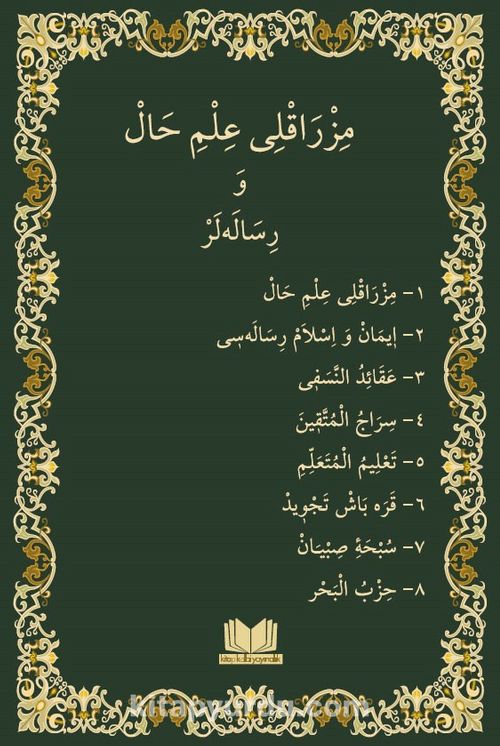 مِزْرَاقْلِى عِلْمِ حَالْ
وَ
رِسَالَەلَرْ
١- مِزْرَاقْلِى عِلْمِ حَالْ
٢- اِيمَانْ وَ اِسْلَامْ رِسَالَەسِى
٣- عَقَائِدُ النَّسَفِى
٤- سِرَاجُ الْمُتَّقِينَ
٥- تَعْلِيمُ الْمُتَعَلِّمِ
٦- قَرَە بَاشْ تَجْوِيدْ
٧- سُبْحَۀِ صِبْيَانْ
٨- حِزْبُ الْبَحْر
kitap kalbi yayıncılık
kitapyurdu.com